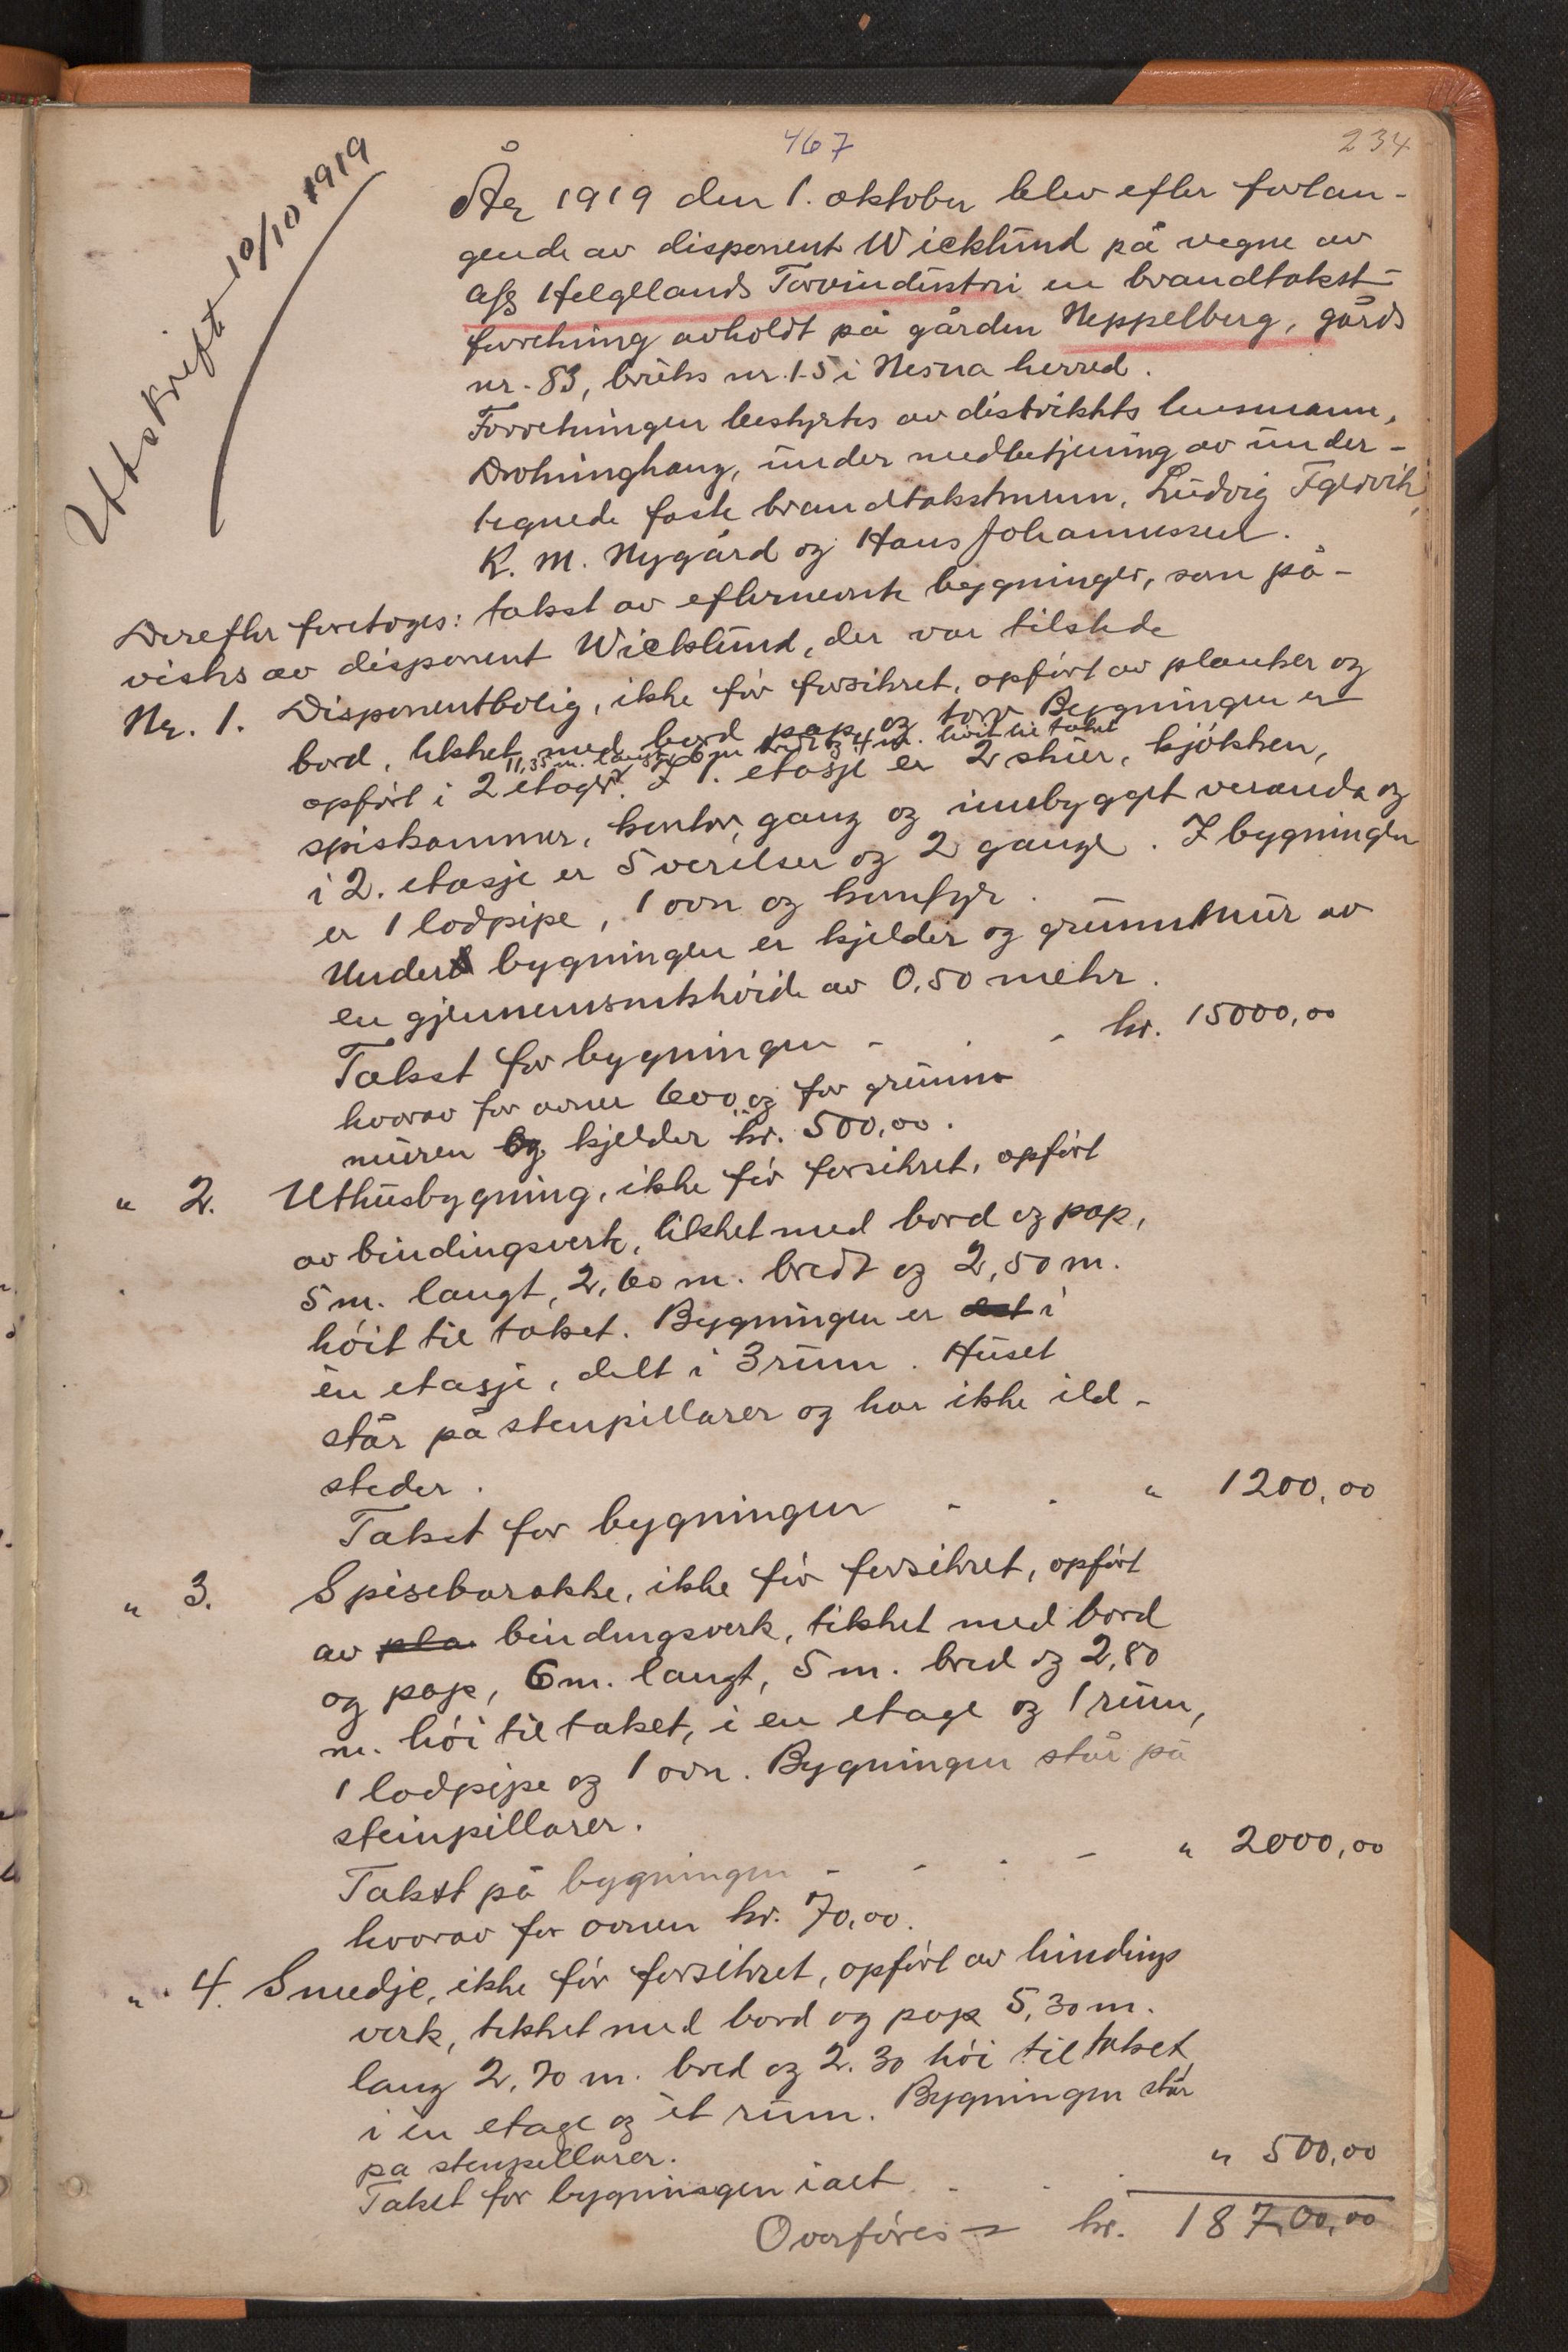 467
234
Utskrift 10/10 1919
År 1919 den 1. oktober blev efter forlan-
gende av disponent Wicklund på vegne av
A/S Helgelands Torvindustri en brandtakst-
forretning avholdt på gården Neppelberg, gårds
nr. 83, bruks nr. 1-5 i Nesna herred.
Forretningen bestyrtes av distrikts lensmann,
Dronninghaug, under medbetjening av under-
tegnede faste brandtakstmenn, Ludvig
K. M. Nygård og Hans Johannessen.
Derefter foretoges: takst av efternevnte bygninger, som på-
vistes av disponent Wicklund, der var tilstede
Nr. 1. Disponentbolig, ikke før forsikret, opført av planker og
bord, tekket med bord pap og torv Bygningen er
11,35 m. langt, 6 m bredt og 4 m. høit til taket
opført i 2 etager. I 1. etasje er 2 stuer, kjøkken,
spiskammer, kontor, gang og innebygget veranda og
i 2. etasje er 5 verelser og 2 gange. I bygningen
er 1 lodpipe, 1 ovn og komfyr.
Under bygningen er kjelder og grunnmur av
en gjennemsnitshøide av 0,50 meter.
Takst for bygningen - . - kr. 15000,00
hvorav for ovner 600,00 og for grunn-
muren og kjelder kr. 500,00.
" 2. Uthusbygning, ikke før forsikret, opført
av bindingsverk, tekket med bord og pap,
5 m. langt, 2,60 m. bredt og 2,50 m.
høit til taket. Bygningen er det i
én etasje, delt i 3 rum. Huset
står på stenpillarer og har ikke ild-
steder.
Takst for bygningen - - " 1200,00
" 3. Spisebarakke, ikke før forsikret, opført
av pla bindingsverk, tekket med bord
og pap, 6 m. langt, 5 m. bred og 2,80
m. høi til taket, i en etage og 1 rum,
1 lodpipe og 1 ovn. Bygningen står på
steinpillarer.
Takst på bygningen - - . - " 2000,00
hvorav for ovnen kr. 70,00.
" 4. Smedje, ikke før forsikret, opført av bindings
verk, tekket med bord og pap 5,30 m.
lang 2,70 m. bred og 2.30 høi til taket
i én etage og ét rum. Bygningen står
på stenpillarer.
Takst for bygningen ialt - . . " 500,00
Overføres kr. 18700,00